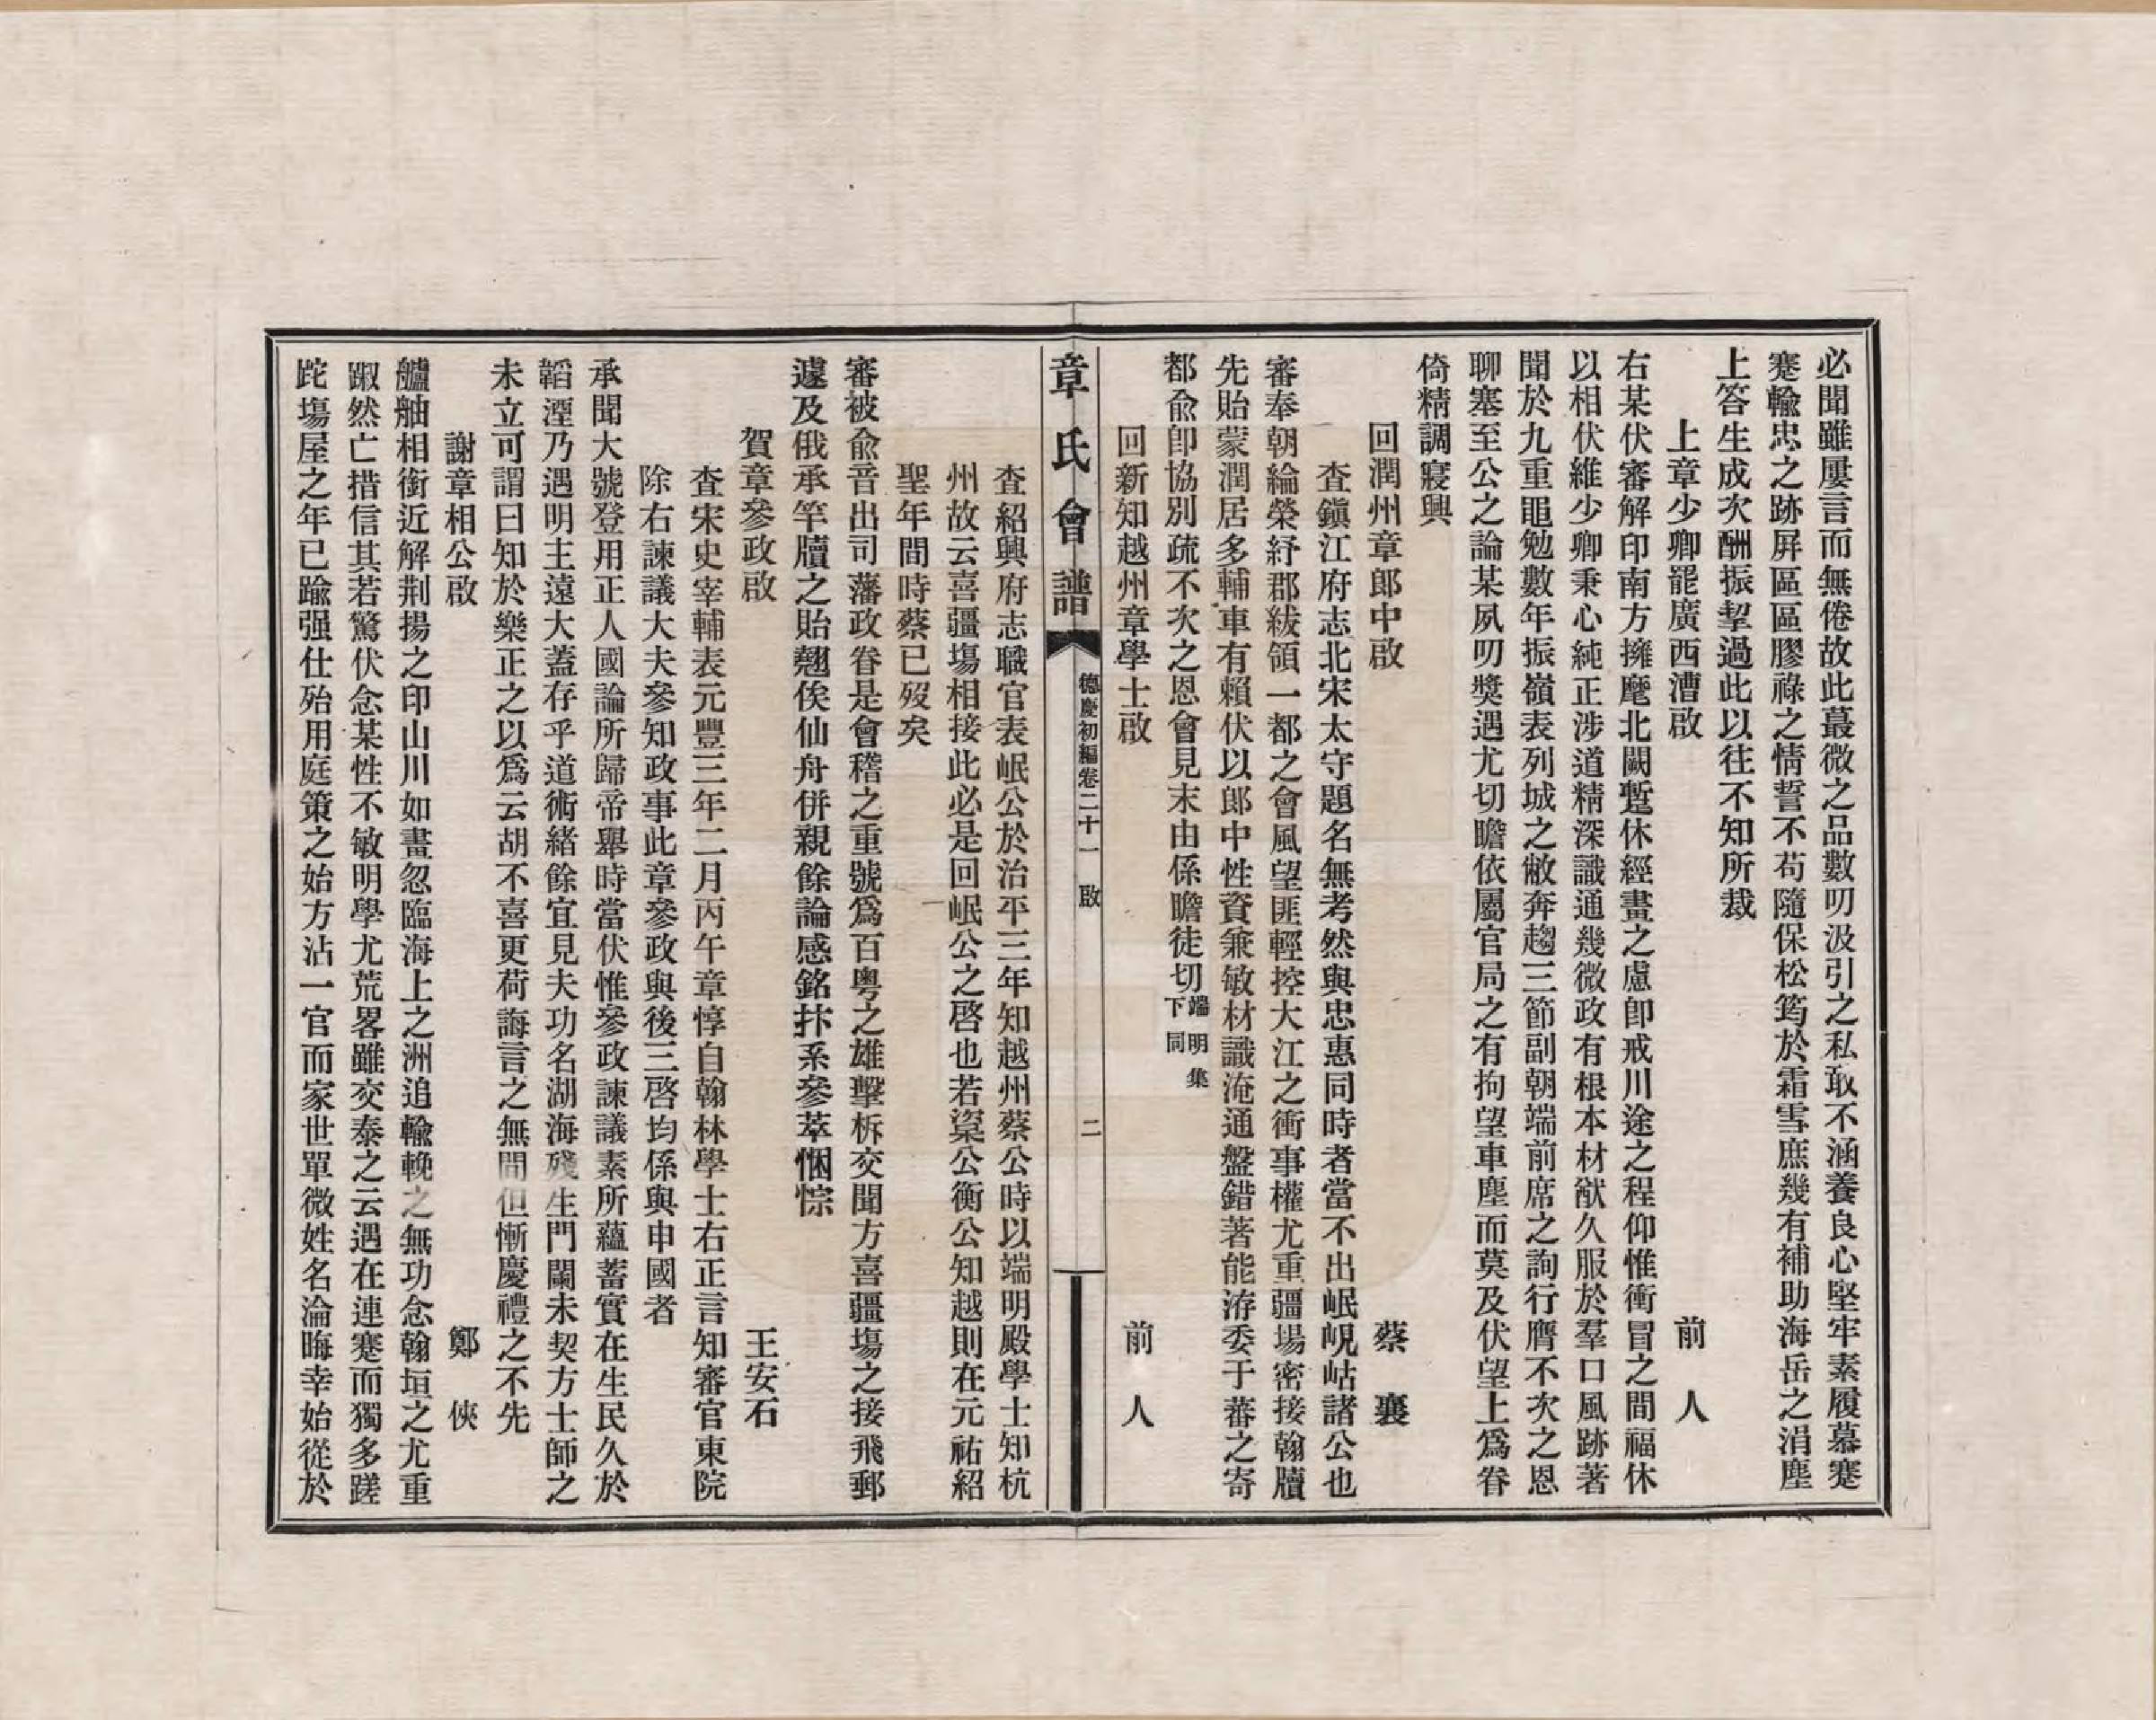 必聞雖屢言而無倦故此蕞微之品數叨汲引之私敢不涵養良心堅牢素履慕蹇
蹇輸忠之跡屏區區膠祿之情誓不苟隨保松筠於霜雪庶幾有補助海岳之涓塵
上答生成次酬振挈過此以往不知所裁
上章少卿罷廣西漕啟 前人
右某伏審解印南方擁麾北闕蹔休經畫之慮卽戒川途之程仰惟衝冒之間福休
以相伏維少卿秉心純正涉道精深識通幾微政有根本材猷久服於羣口風跡著
聞於九重黽勉數年振嶺表列城之敝奔趨三節副朝端前席之詢行膺不次之恩
聊塞至公之論某夙叨獎遇尤切瞻依屬官局之有拘望車塵而莫及伏望上爲眷
倚精調寢興
回潤州章郎中啟 蔡襄
查鎭江府志北宋太守題名無考然與忠惠同時者當不出岷峴岵諸公也
審奉朝綸榮紆郡紱領一都之會風望匪輕控大江之衝事權尤重疆場密接翰牘
先貽蒙潤居多輔車有賴伏以郎中性資兼敏材識淹通盤錯著能洊委于蕃之寄
都兪卽協別疏不次之恩會見末由係瞻徒切端明集下同
回新知越州章學士啟 前人
章氏會譜 德慶初編卷二十一 啟 二
查紹興府志職官表岷公於治平三年知越州蔡公時以端明殿學士知杭
州故云喜疆塲相接此必是回岷公之啓也若楶公衡公知越則在元祐紹
聖年間時蔡已歿矣
審被兪音出司藩政眷是會稽之重號爲百粵之雄擊柝交聞方喜疆塲之接飛郵
遽及俄承竿牘之貽翹俟仙舟併親餘論感銘抃系參萃悃悰
賀章參政啟 王安石
查宋史宰輔表元豐三年二月丙午章惇自翰林學士右正言知審官東院
除右諫議大夫參知政事此章參政與後三啓均係與申國者
承聞大號登用正人國論所歸帝舉時當伏惟參政諫議素所蘊蓄實在生民久於
韜湮乃遇明主遠大蓋存乎道術緒餘宜見夫功名湖海殘生門闌未契方士師之
未立可謂曰知於樂正之以爲云胡不喜更荷誨言之無間但慚慶禮之不先
謝章相公啟 鄭俠
艫舳相銜近解荆揚之印山川如畫忽臨海上之洲追輸輓之無功念翰垣之尤重
踧然亡措信其若驚伏念某性不敏明學尤荒畧雖交泰之云遇在連蹇而獨多蹉
跎塲屋之年已踰强仕殆用庭策之始方沾一官而家世單微姓名淪晦幸始從於